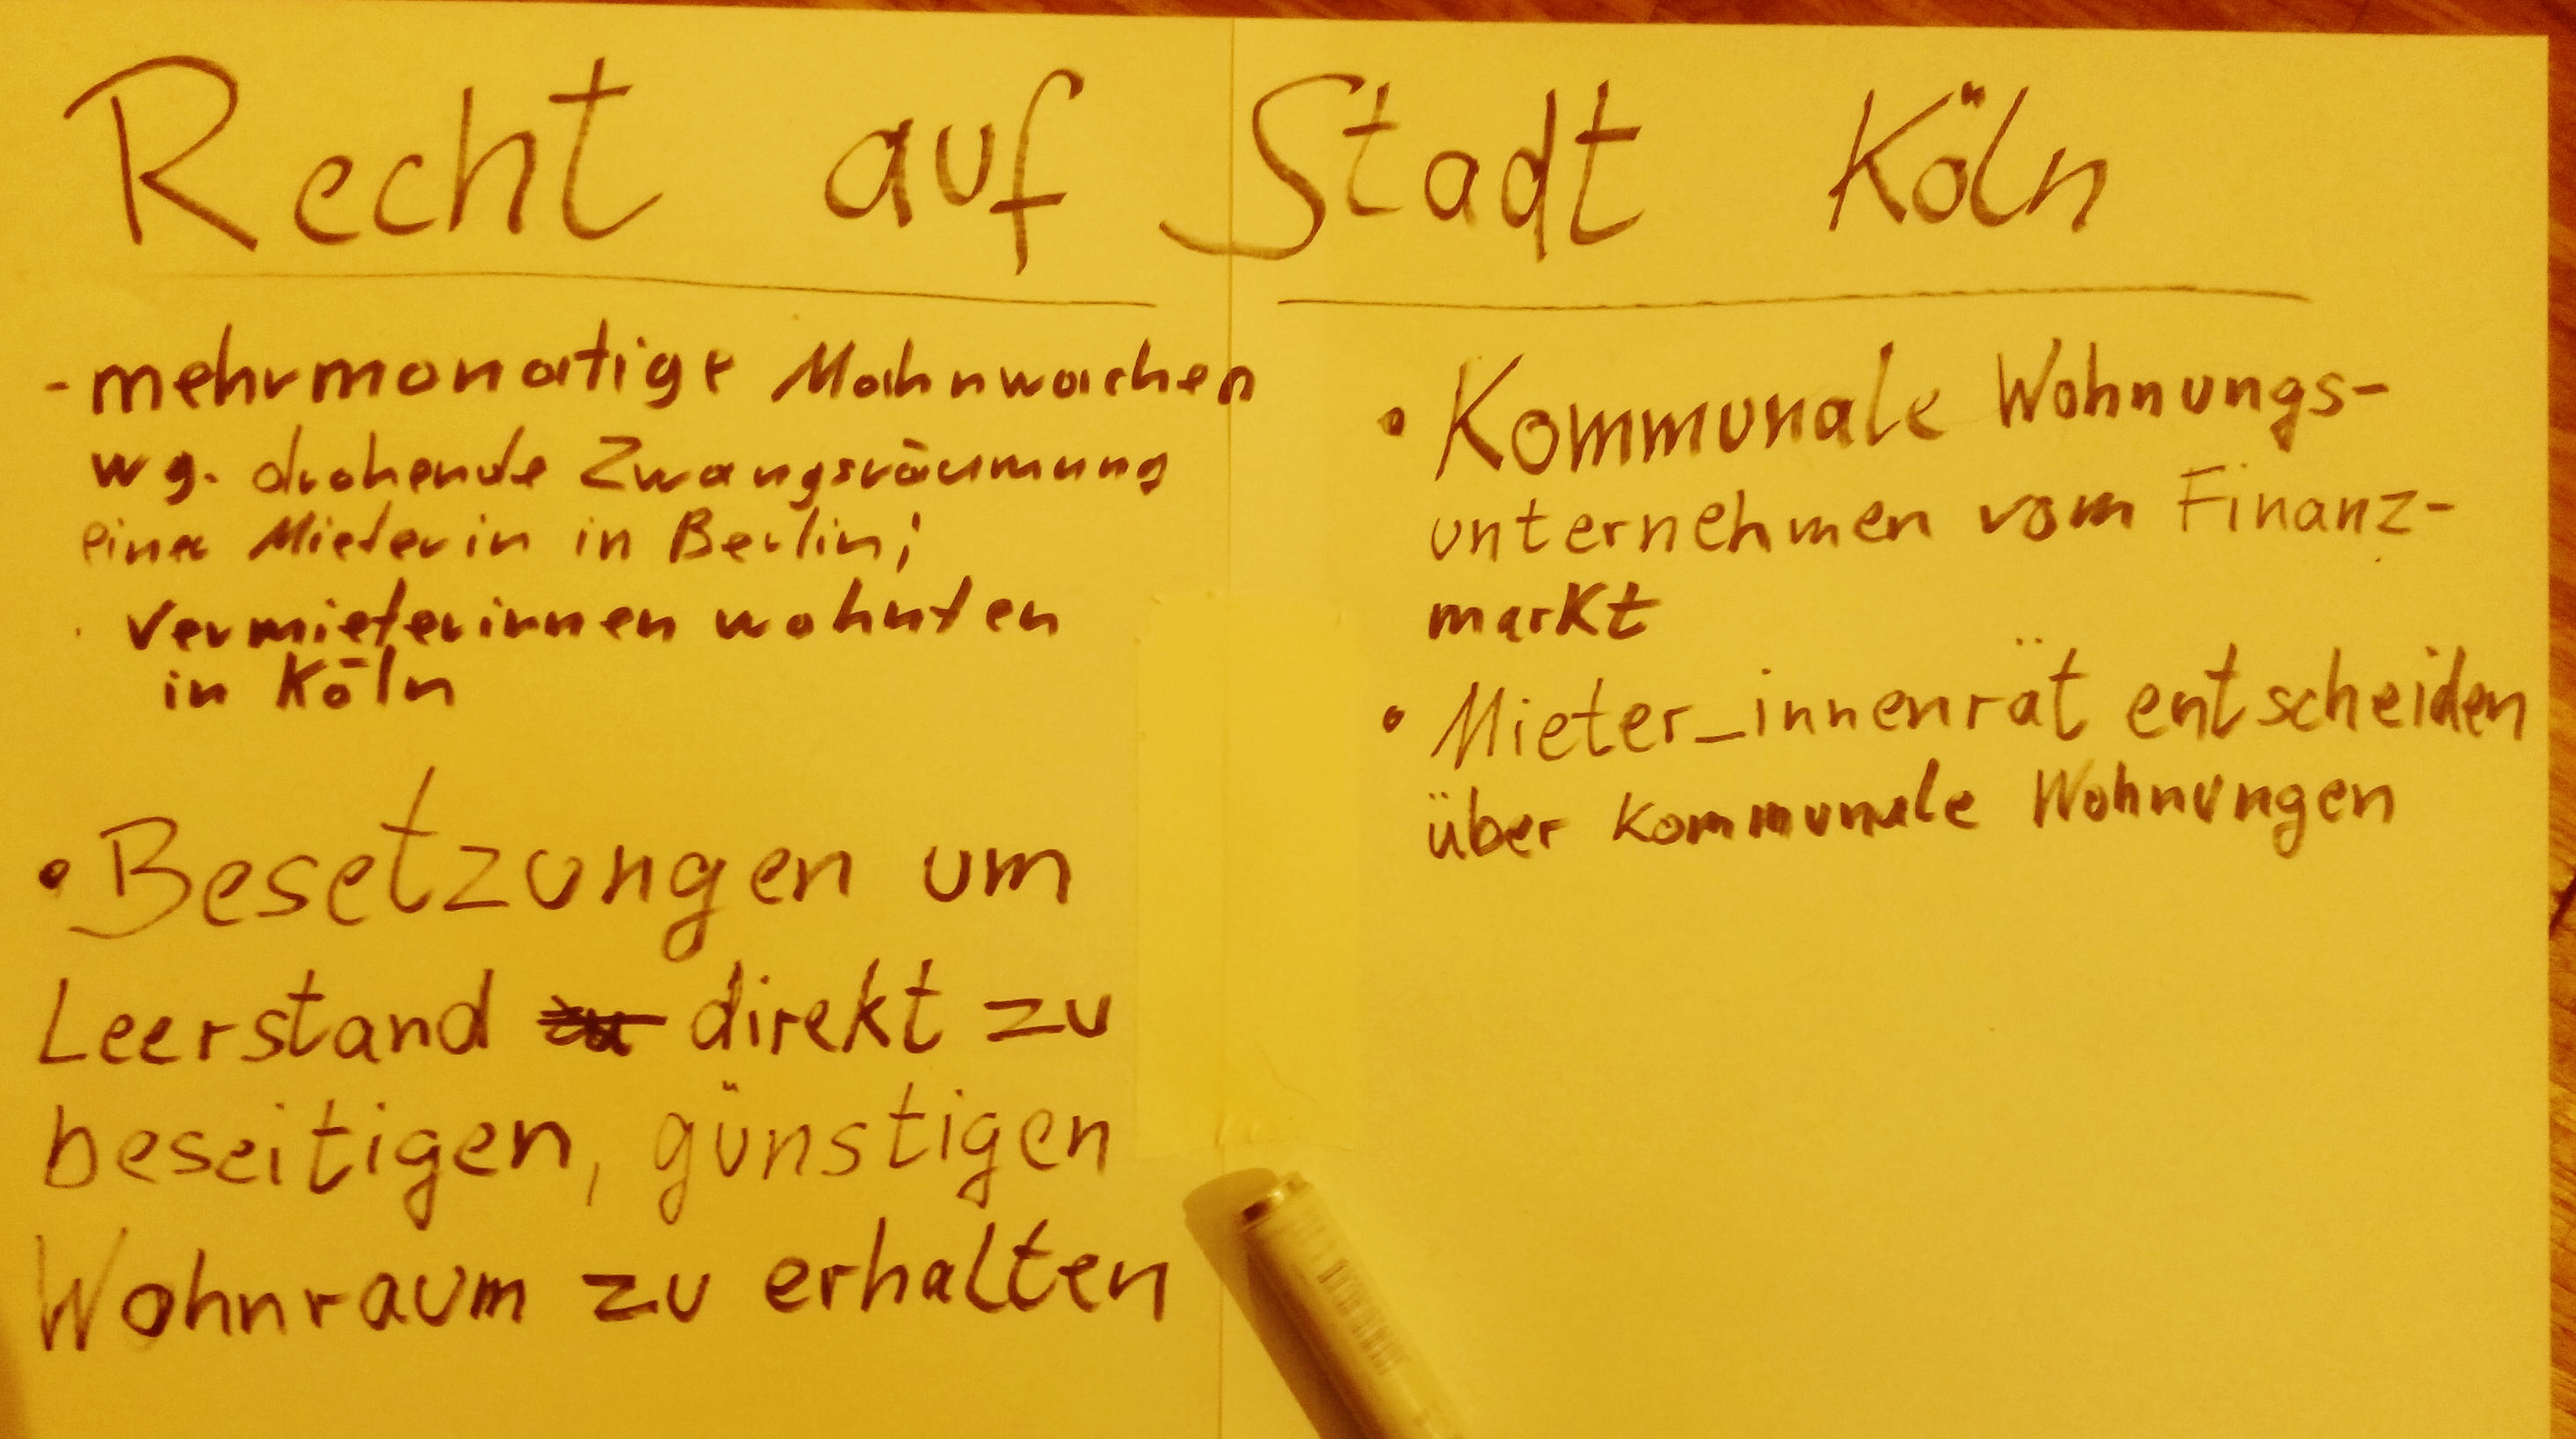 Recht auf Stadt Köln
- mehrmonatige Mahnwachen
wg. drohende Zwangsräumung
einer Mieterin in Berlin;
Vermieterinnen wohnten
in Köln
• Besetzungen um
Leerstand direkt zu
beseitigen, günstigen
Wohnraum zu erhalten
• Kommunale Wohnungs-
unternehmen vom Finanz-
markt
• Mieter_innenrät entscheiden
über kommunale Wohnungen